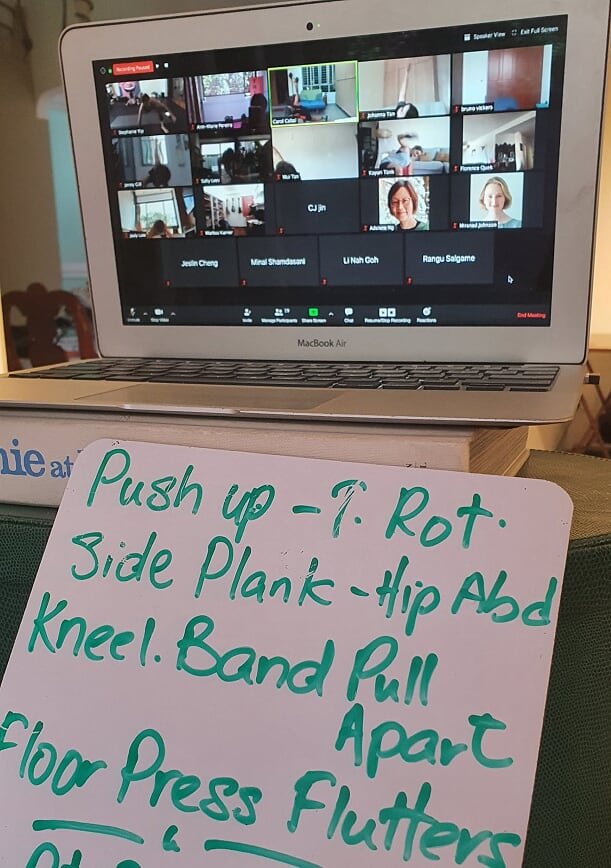 Recording Paused
Speaker View
Exit Full Screen
Stephanie Yip
Ann-Marie Pereira
Carol Cabal
Johanna Tan
bruno vickers
Jenny Gill
Sally Lowe
Mui Tan
Kayun Tam
Florence Quek
Judy Lee
Markus Karner
CJ jin
Adeline Ng
Jeslin Cheng
Minal Shamdasani
Li Nah Goh
Rangu Salgame
Unmute
Stop Video
Invite
19
Manage Participants
Share Screen
Chat
Resume/Stop Recording
Reactions
End Meeting
MacBook Air
nie at
Push up - T. Rot.
Side Plank - Hip Abd
Kneel. Band Pull
Apart
Floor Press Flutters